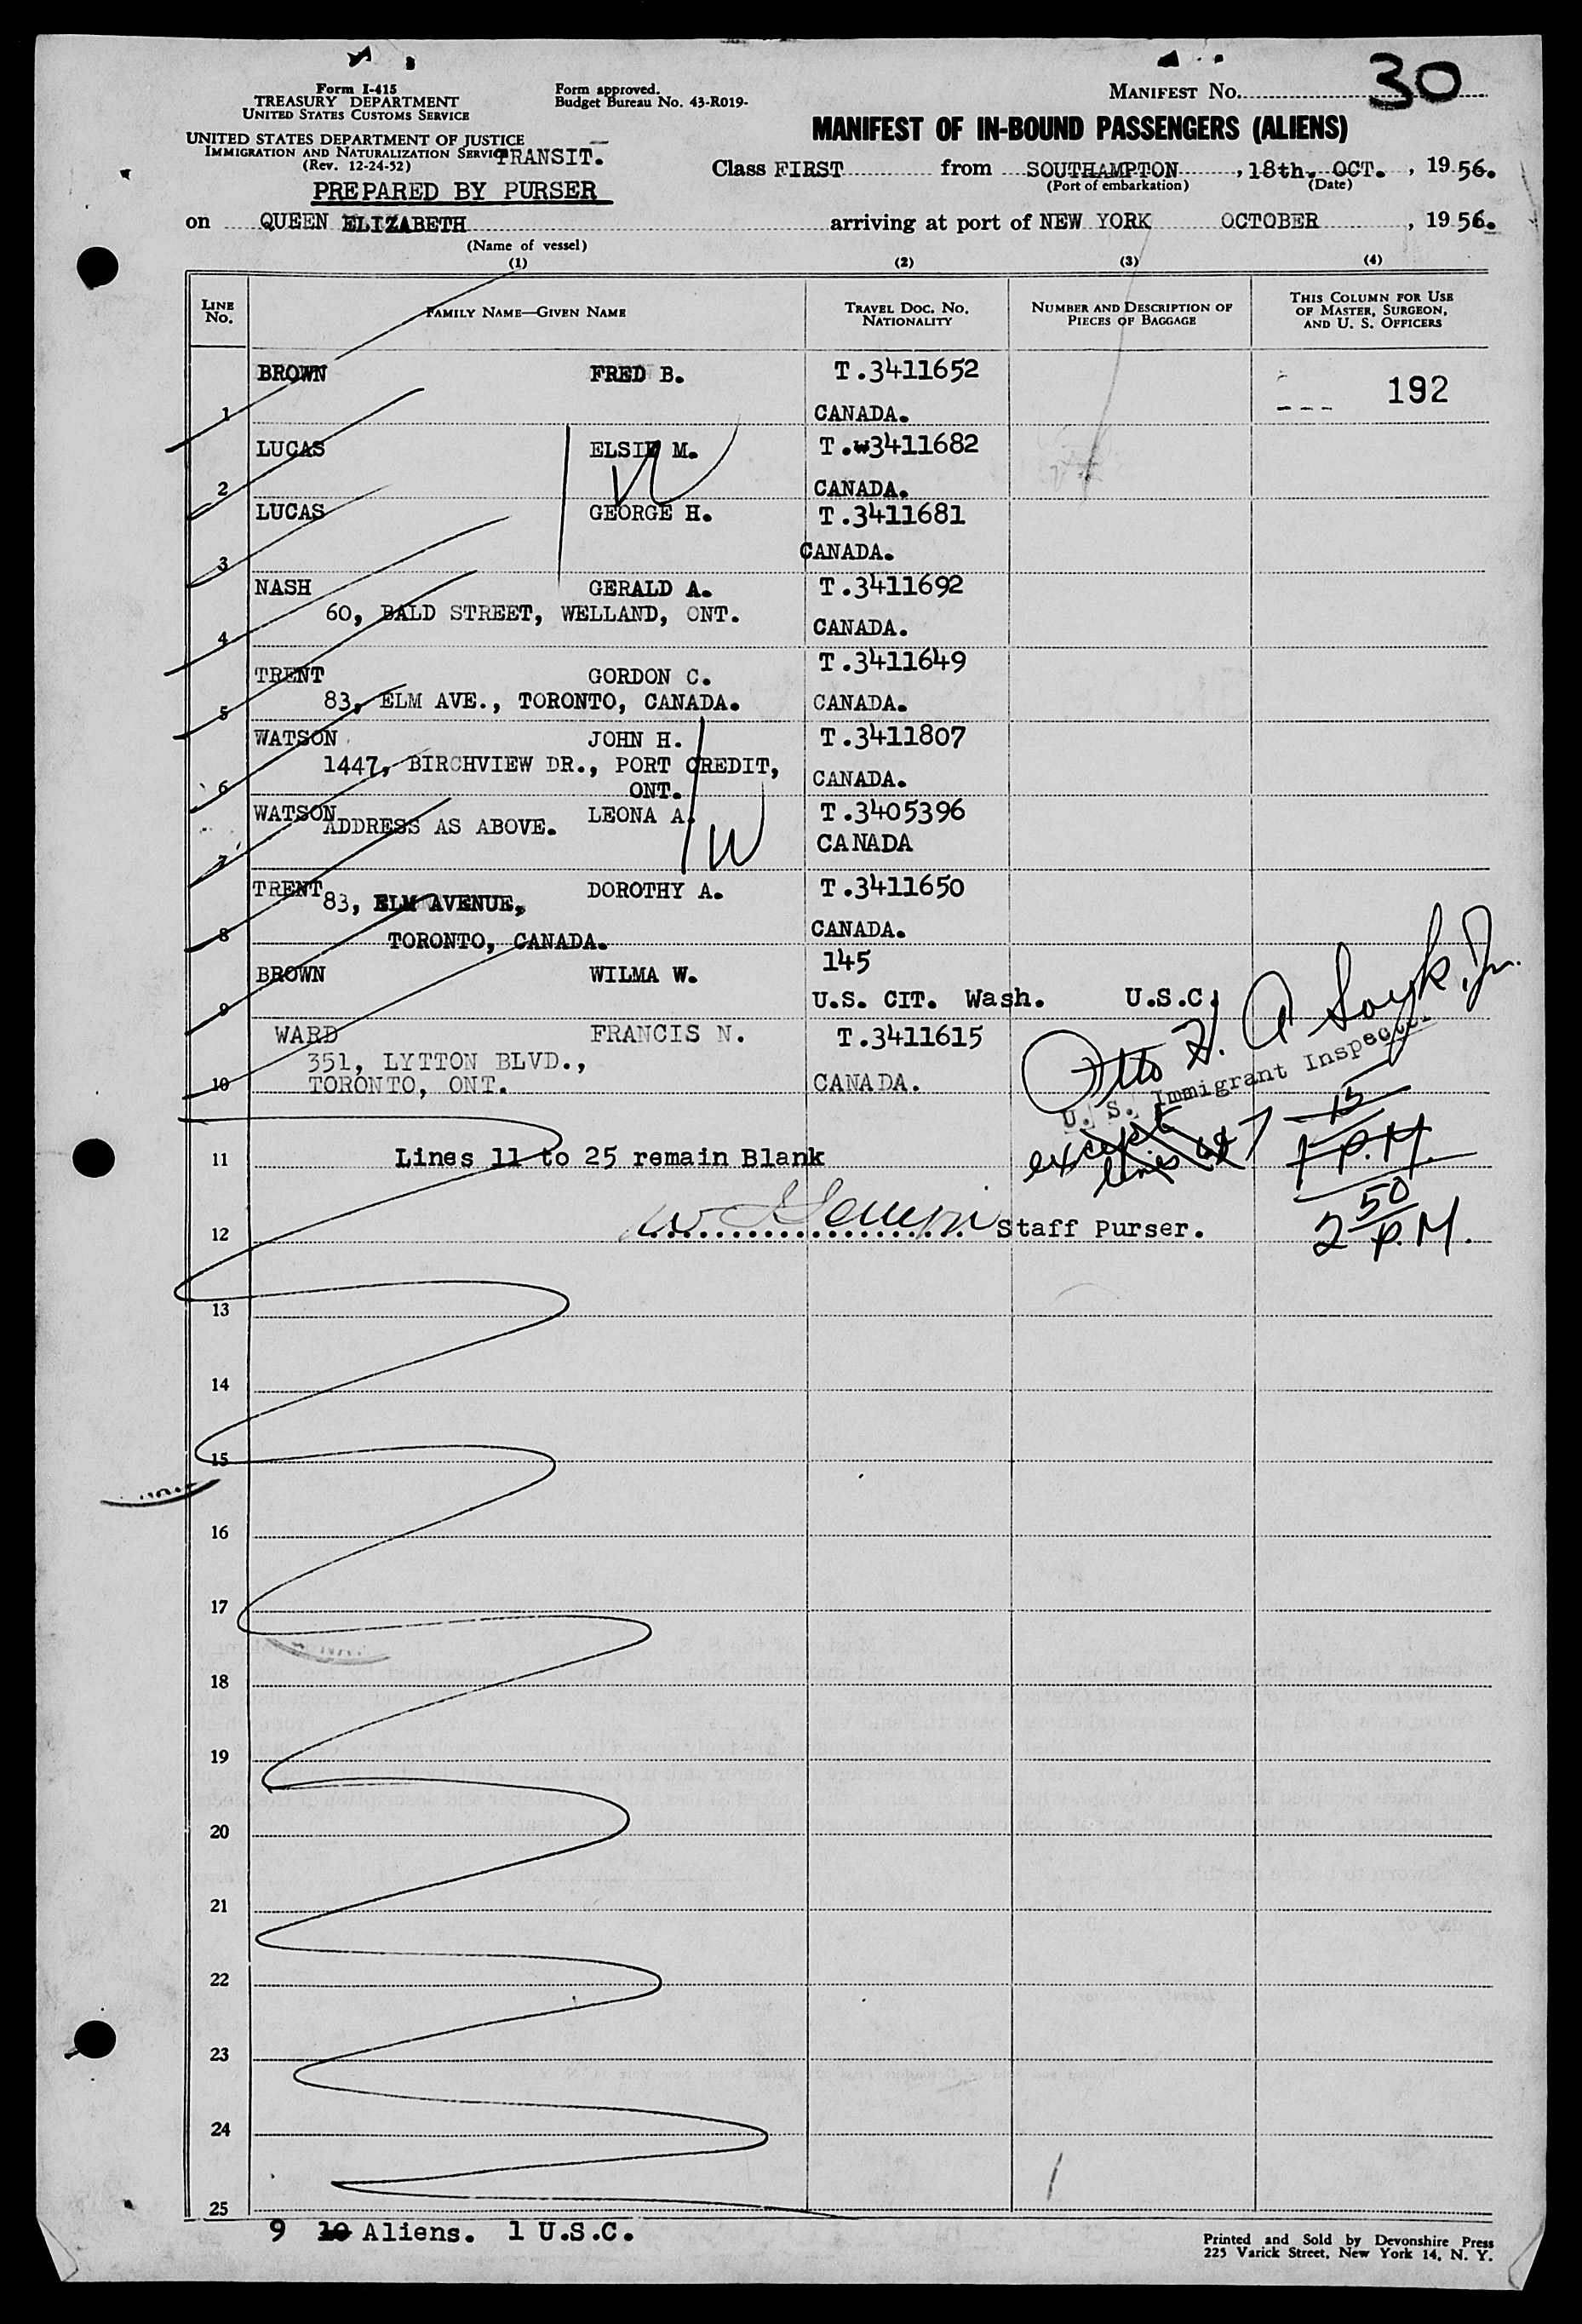 30
Form I-415
TREASURY DEPARTMENT
UNITED STATES CUSTOMS SERVICE
Form approved.
Budget Bureau No. 43-R019-
MANIFEST NO.
UNITED STATES DEPARTMENT OF JUSTICE
IMMIGRATION AND NATURALIZATION SERVICE
(Rev. 12-24-52)
TRANSIT.
PREPARED BY PURSER
MANIFEST OF IN-BOUND PASSENGERS (ALIENS)
Class FIRST from SOUTHAMPTON, 18th. OCT., 1956.
(Port of embarkation) (Date)
on QUEEN ELIZABETH arriving at port of NEW YORK OCTOBER, 1956.
(Name of vessel)
(1) (2) (3) (4)
LINE NO.
FAMILY NAME—GIVEN NAME
TRAVEL DOC. NO. NATIONALITY
NUMBER AND DESCRIPTION OF PIECES OF BAGGAGE
THIS COLUMN FOR USE OF MASTER, SURGEON, AND U. S. OFFICERS
BROWN FRED B. T.3411652
192
1 CANADA.
LUCAS ELSIE M. T.w3411682
2 CANADA.
LUCAS GEORGE H. T.3411681
3 CANADA.
NASH GERALD A. T.3411692
60, BALD STREET, WELLAND, ONT.
4 CANADA.
TRENT GORDON C. T.3411649
5 83, ELM AVE., TORONTO, CANADA. CANADA.
WATSON JOHN H. T.3411807
1447, BIRCHVIEW DR., PORT CREDIT,
6 ONT. CANADA.
WATSON LEONA A. T.3405396
ADDRESS AS ABOVE. CANADA
7
TRENT DOROTHY A. T.3411650
83, ELM AVENUE,
8 TORONTO, CANADA. CANADA.
BROWN WILMA W. 145
9 U.S. CIT. Wash. U.S.C.
WARD FRANCIS N. T.3411615
351, LYTTON BLVD.,
10 TORONTO, ONT. CANADA.
Otto H. A
U. S. Immigrant Inspector
except
lines
7
1 15 P.M.
11 Lines 11 to 25 remain Blank
2 50 P.M.
12 Staff Purser.
13
14
15
16
17
18
19
20
21
22
23
24
25
9 10 Aliens. 1 U.S.C.
Printed and Sold by Devonshire Press
225 Varick Street, New York 14, N. Y.